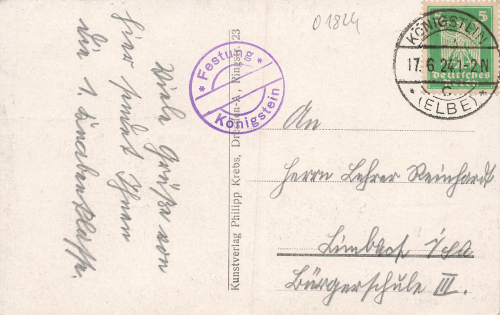 Viele Grüße von
hier sendet Ihnen
die 1. Knabenklasse.
Kunstverlag Philipp Krebs, Dresden-A., Ringstr. 23
* Festung *
Königstein
01824
KÖNIGSTEIN
17.6.24.1-2N
* c *
(ELBE)
5
Deutsches
Reich
An
Herrn Lehrer Reinhardt
Limbach i/Sa
Bürgerschule III.